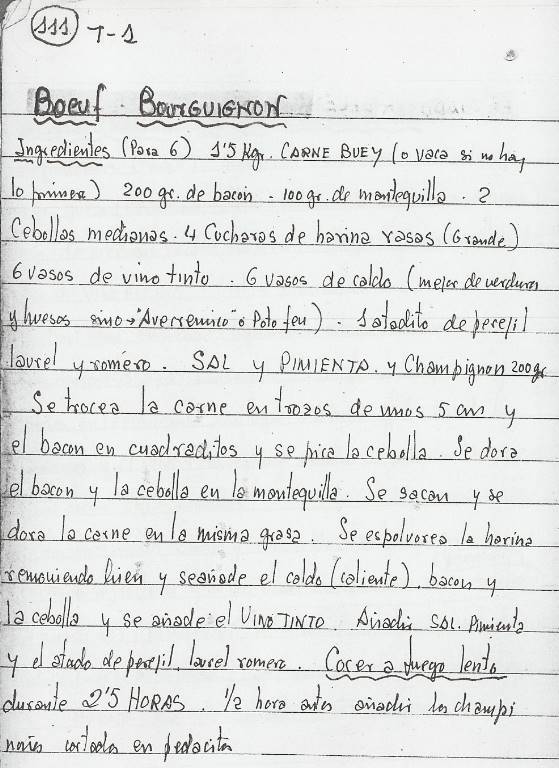 111 T-1
Boeuf Bourguignon
Ingredientes (Para 6) 1'5 Kgr. CARNE BUEY (o vaca si no hay
lo primero) 200 gr. de bacon - 100 gr. de mantequilla - 2
Cebollas medianas. 4 Cucharas de harina rasas (Grande)
6 vasos de vino tinto. 6 vasos de caldo (mejor de verduras
y huesos sino → "Avecremico" o Poto feu). 1 atadito de perejil
laurel y romero. SAL y PIMIENTA. y Champignon 200 gr
Se trocea la carne en trozos de unos 5 cm y
el bacon en cuadraditos y se pica la cebolla. Se dora
el bacon y la cebolla en la mantequilla. Se sacan y se
dora la carne en la misma grasa. Se espolvorea la harina
removiendo bien y se añade el caldo (caliente), bacon y
la cebolla y se añade el VINO TINTO. Añadir SAL. Pimienta
y el atado de perejil, laurel romero. Cocer a fuego lento
durante 2'5 HORAS. 1/2 hora antes añadir los champi
ñones cortados en pedacitos